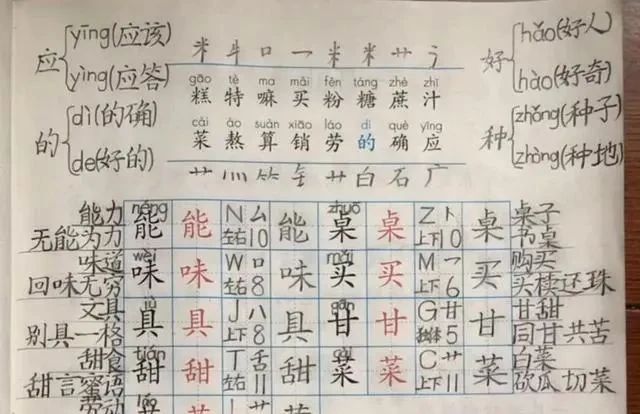 应 yīng(应该) yìng(应答)
的 dì(的确) de(好的)
米 牜 口 乛 米 米 艹 氵
gāo tè ma mǎi fěn táng zhè zhī
糕 特 嘛 买 粉 糖 蔗 汁
cài áo suàn xiāo láo dí què yīng
菜 熬 算 销 劳 的 确 应
艹 灬 ⺮ 钅 艹 白 石 广
好 hǎo(好人) hào(好奇)
种 zhǒng(种子) zhòng(种地)
能力 néng 能 能 N 厶 能 zhuō 桌 桌 Z 卜 桌 桌子
无能为力 左右 10 上下 10 书桌
味道 wèi 味 味 W 口 味 mǎi 买 买 M 乛 买 购买
回味无穷 左右 8 上下 6 买椟还珠
文具 jù 具 具 J 八 具 gān 甘 甘 G 艹 甘 甘甜
别具一格 上下 8 独体 5 同甘共苦
甜食 tián 甜 甜 T 舌 甜 cài 菜 菜 C 艹 菜 白菜
甜言蜜语 左右 11 上下 11 砍瓜切菜
劳动 láo